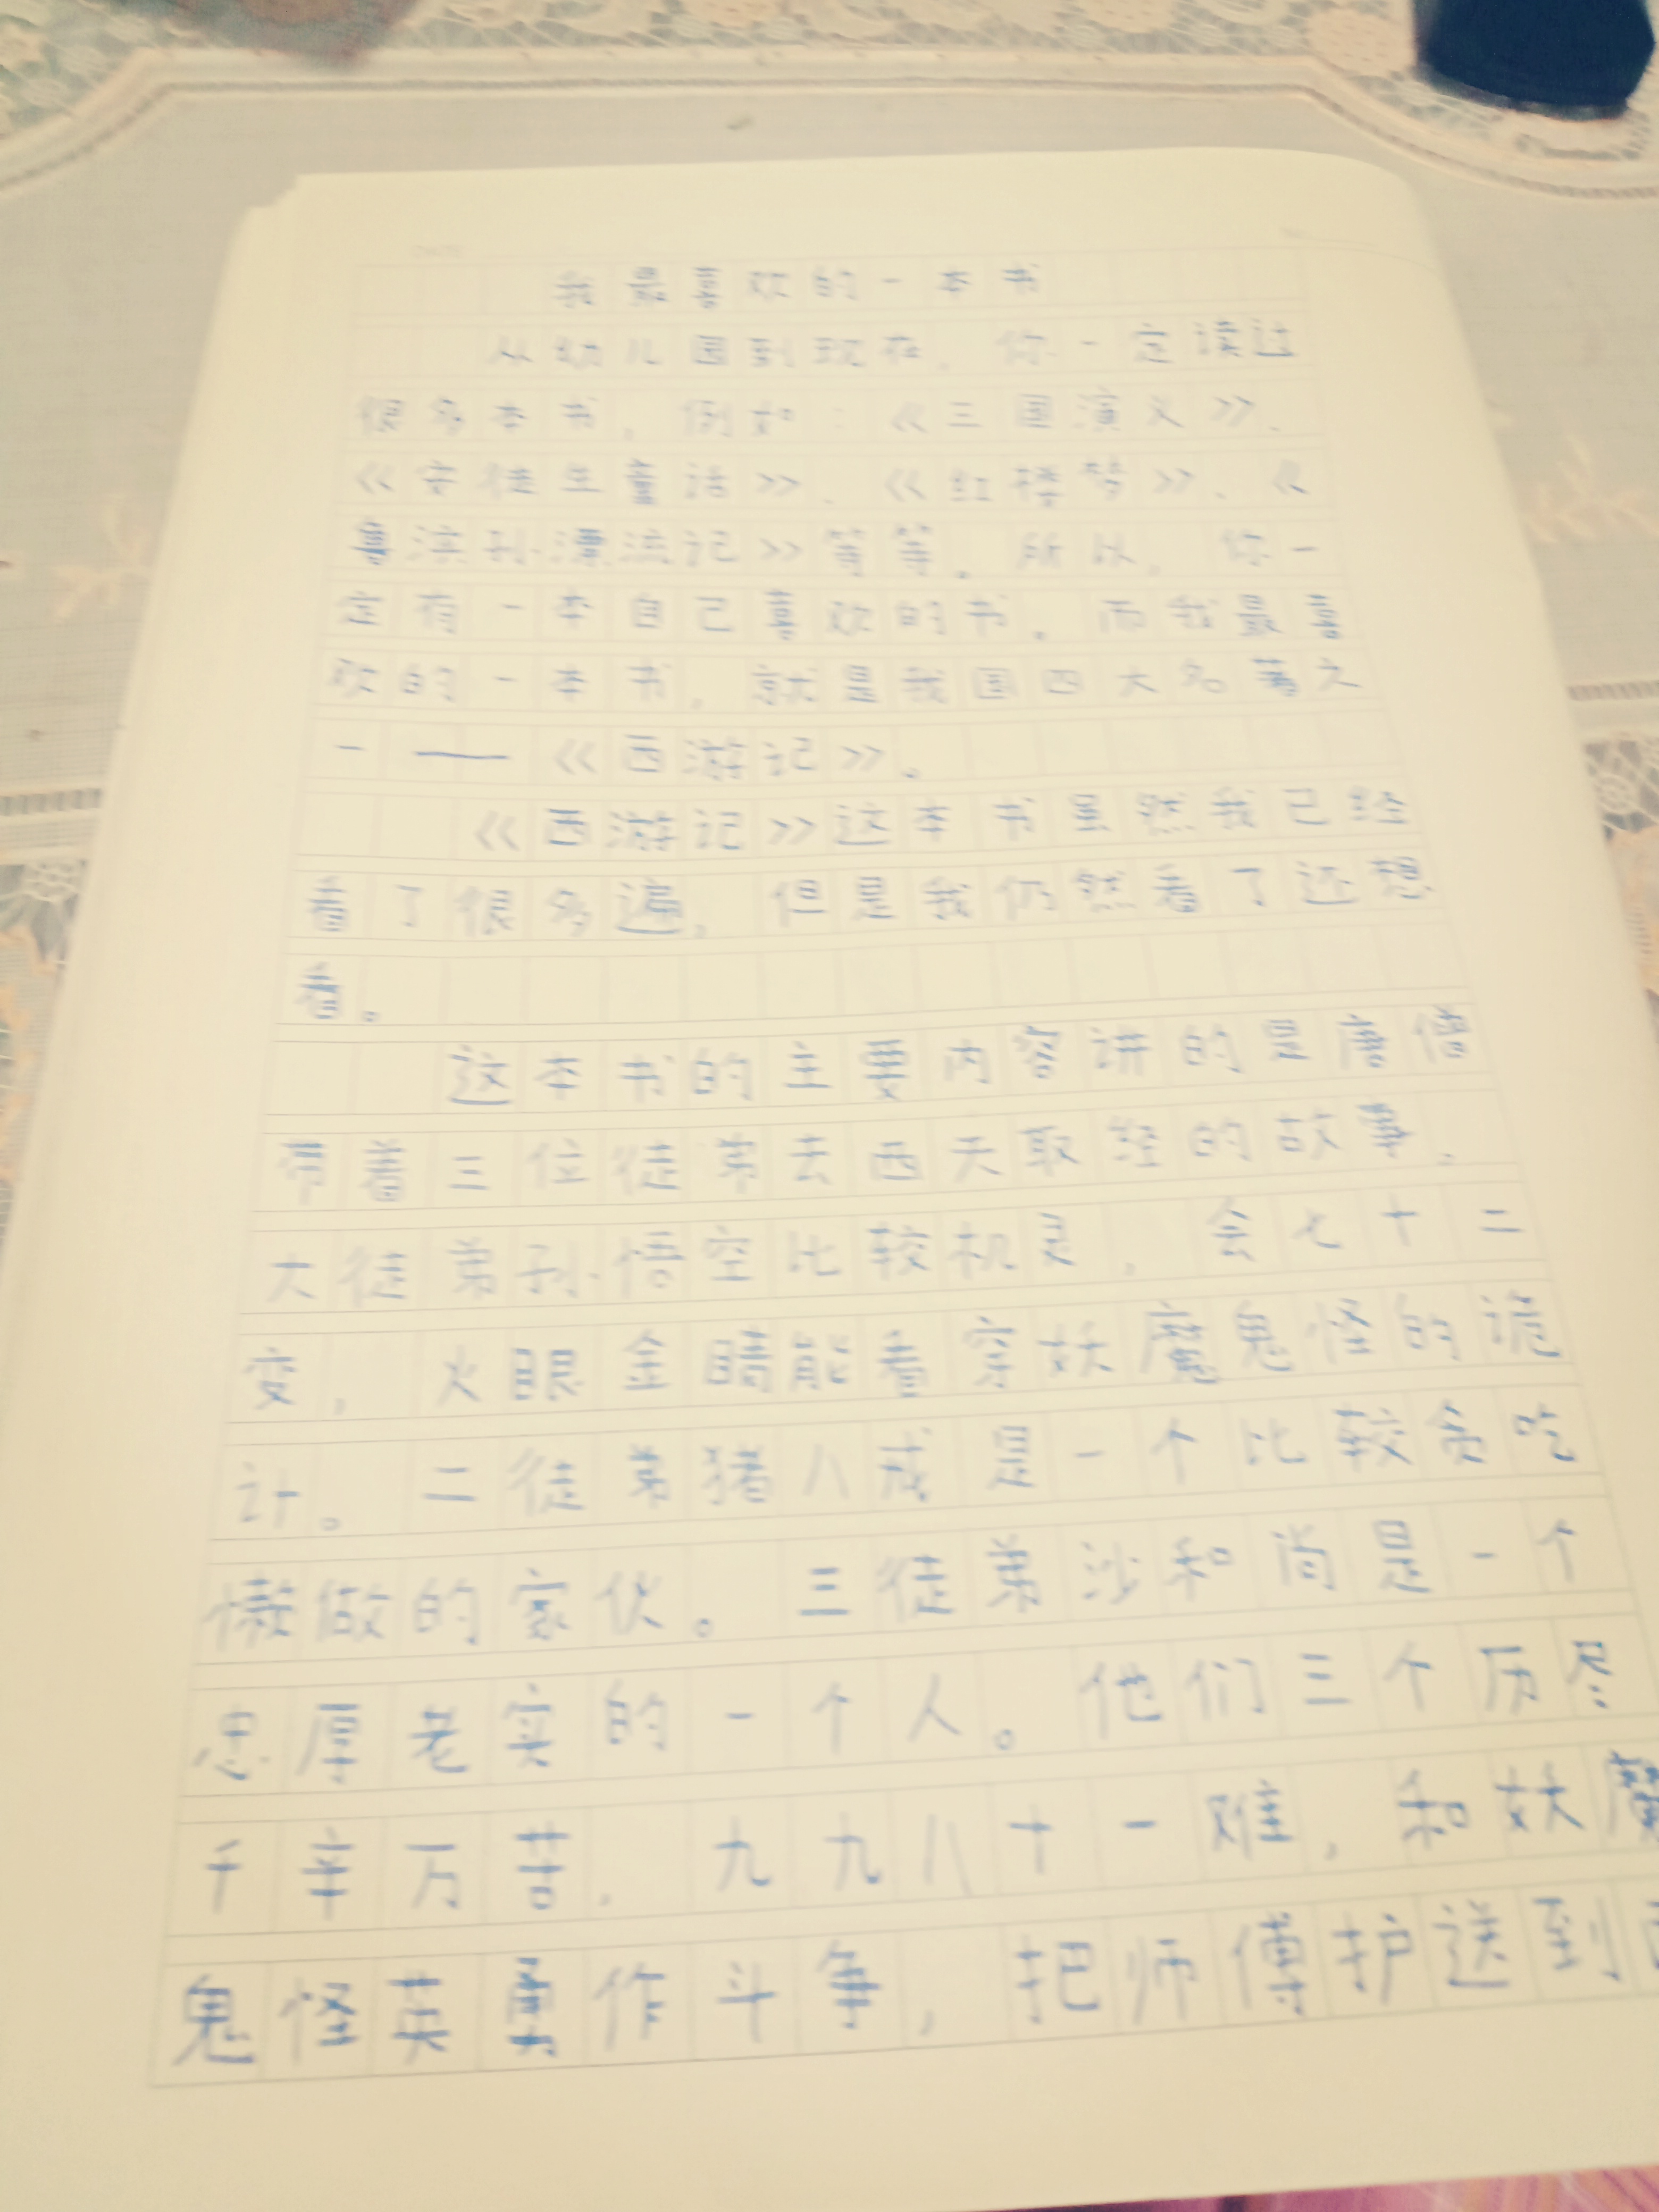 我最喜欢的一本书
从幼儿园到现在，你一定读过
很多本书，例如：《三国演义》、
《安徒生童话》、《红楼梦》、《
鲁滨孙漂流记》等等。所以，你一
定有一本自己喜欢的书。而我最喜
欢的一本书，就是我国四大名著之
一——《西游记》。
《西游记》这本书虽然我已经
看了很多遍，但是我仍然看了还想
看。
这本书的主要内容讲的是唐僧
带着三位徒弟去西天取经的故事。
大徒弟孙悟空比较机灵，会七十二
变，火眼金睛能看穿妖魔鬼怪的诡
计。二徒弟猪八戒是一个比较贪吃
懒做的家伙。三徒弟沙和尚是一个
忠厚老实的一个人。他们三个历尽
千辛万苦，九九八十一难，和妖魔
鬼怪英勇作斗争，把师傅护送到